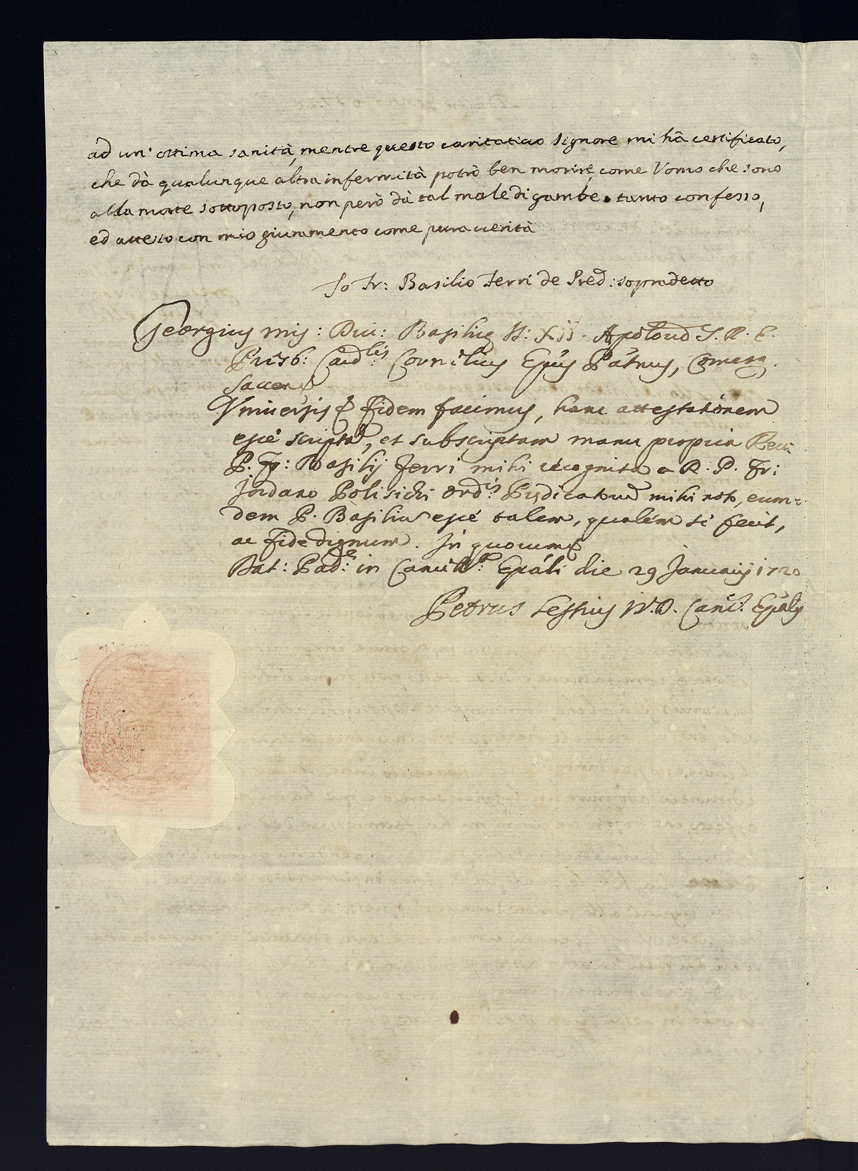 ad un' ottima sanità, mentre questo caritativo Signore mi hà certificato,
che dà qualunque altra infermità potrò ben morire, come Vomo che sono
alla morte sottoposto, non però dà tal male di gambe. tanto confesso,
ed attesto con mio giuramento come pura verità
Io Fr: Basilio Ferri de Pred: sopradetto
Georgius mis: Divi: Basilic H: XII. Apostolorū S. R. E.
Prisb: Cardlis Cornelius Epūs Patnus, Comesq.
Saccens
Vniversis fidem facimus, hanc attestationem
esse scriptā, et subscriptam manu propria
P. Fr: Basilij Ferri mihi recognita a R. P. Fr:
Jordano Polisichi Ordis Predicatorū mihi not, eum-
dem P. Basiliū esse talem, qualem se fecit,
ac fidedignum. In quorum
Dat: Pad: in Canc Epāli die 29 Januarij 1720
Petrus Canc. Epālis